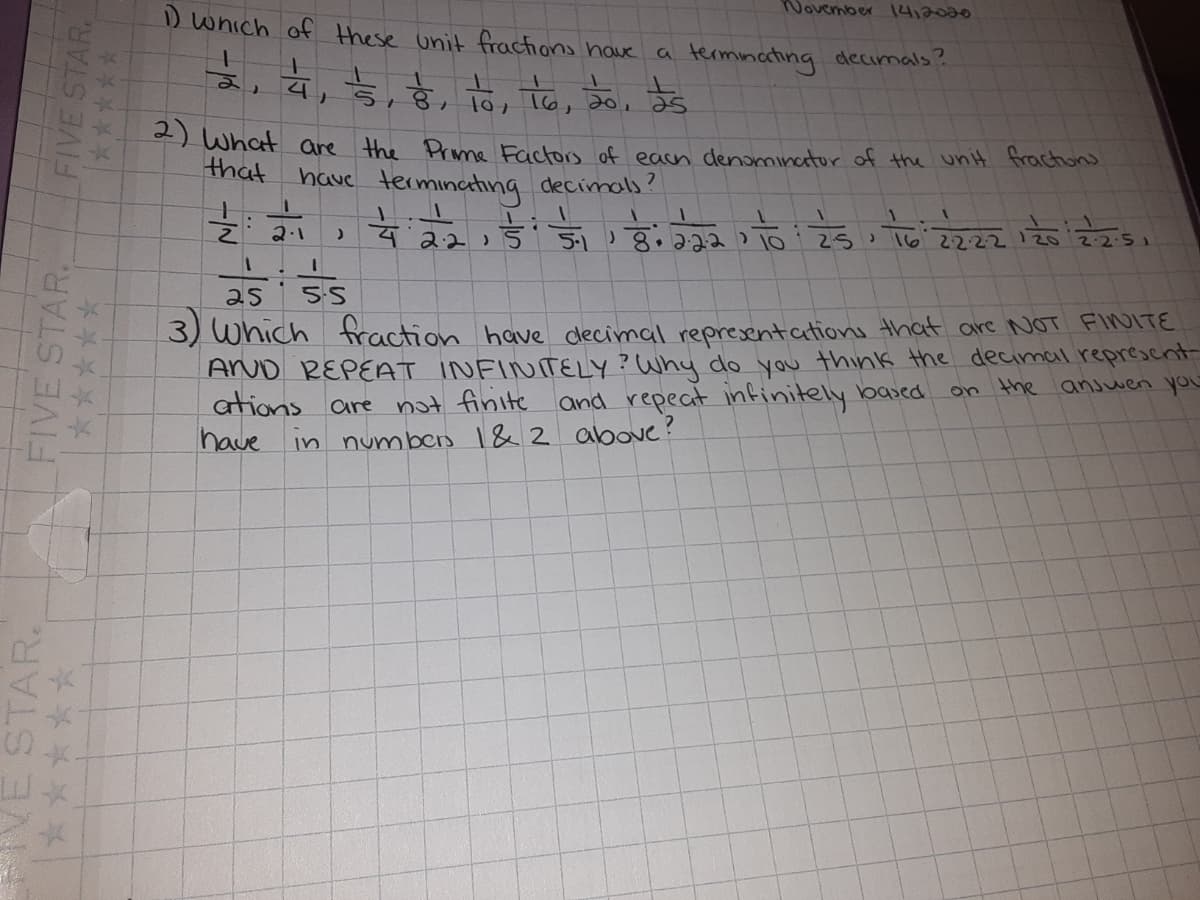 November 14, 2020
1) Which of these unit fractions have a terminating decimals?
1/2, 1/4, 1/5, 1/8, 1/10, 1/16, 1/20, 1/25
2) What are the Prime Factors of each denominator of the unit fractions
that have terminating decimals?
1/2 : 1/2·1, 1/4 : 1/2·2, 1/5 : 1/5·1, 1/8 : 1/2·2·2, 1/10 : 1/2·5, 1/16 : 1/2·2·2·2, 1/20 : 1/2·2·5,
1/25 : 1/5·5
3) Which fraction have decimal representations that are NOT FINITE
AND REPEAT INFINITELY? Why do you think the decimal represent-
ations are not finite and repeat infinitely based on the answer you
have in numbers 1 & 2 above?
FIVE STAR.
FIVE STAR.
FIVE STAR.